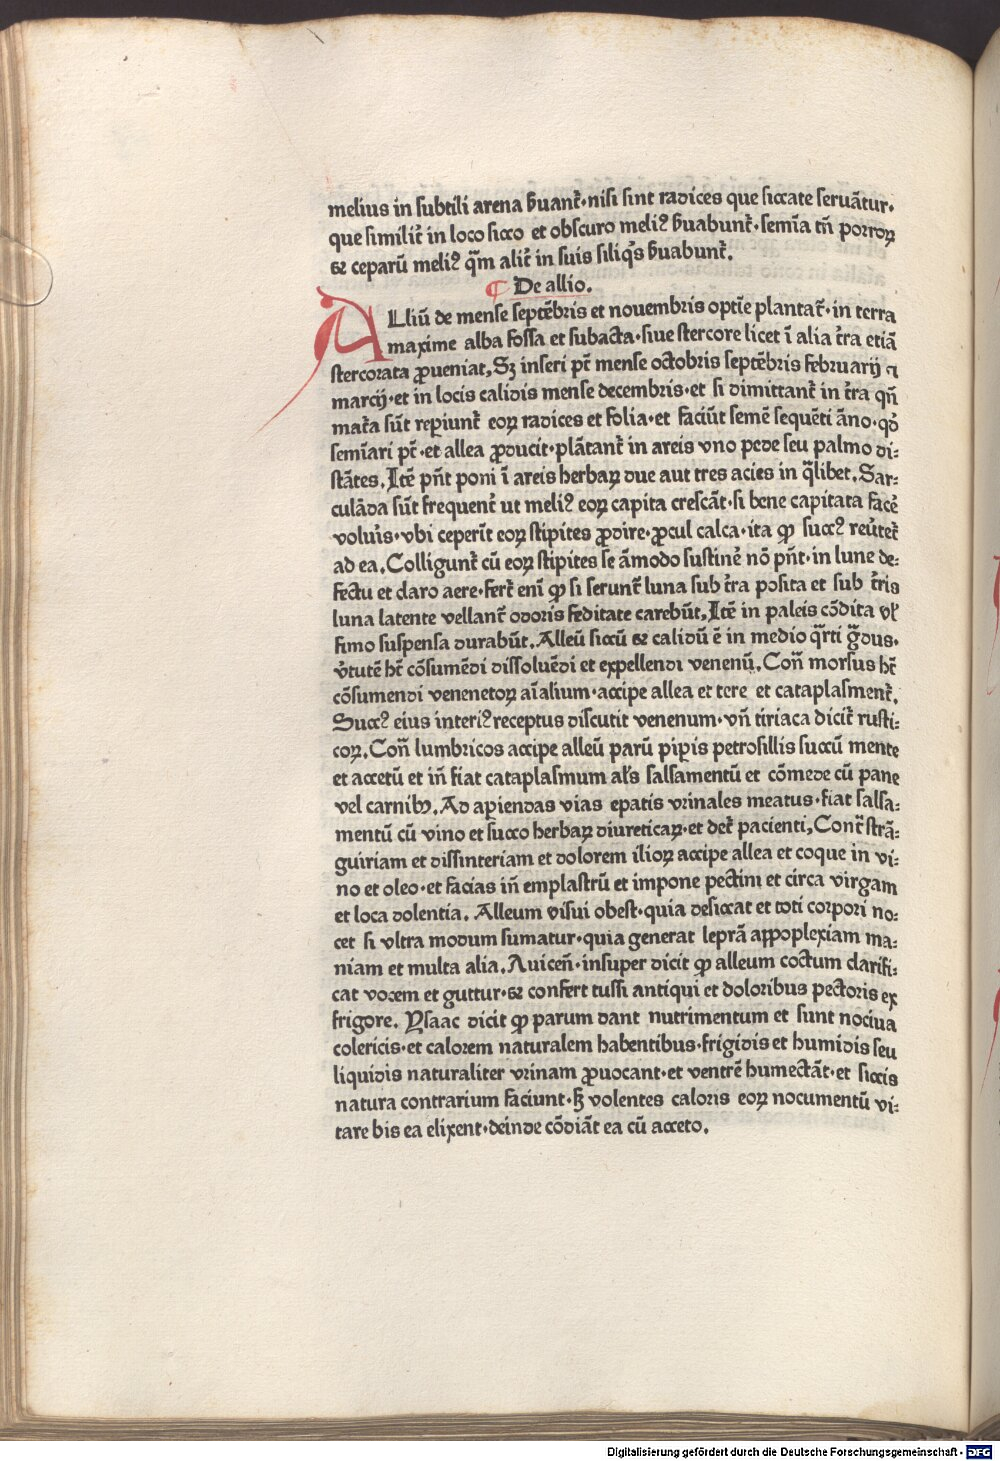 melius in subtili arena ẜuant᷑·nisi sint radices que siccate seruãtur·
que similit᷑ in loco sicco et obscuro meliꝰ ẜuabunt᷑·semĩa tñ porroꝝ
⁊ ceparũ meliꝰ q̃m alit᷑ in suis siliq̃s ẜuabunt᷑.
¶ De allio.
ALliũ de mense septẽbris et nouembris optĩe plantat᷑·in terra
maxime alba fossa et subacta·siue stercore licet ĩ alia t᷑ra etiã
stercorata ꝓueniat, Sꝫ inseri pt̃ mense octobris septẽbris februarij ⁊
marcij·et in locis calidis mense decembris·et si dimittant᷑ in t᷑ra qñ
mat᷑a sũt repiunt᷑ eoꝝ radices et folia·et faciũt semẽ sequẽti ãno·qd᷑
semĩari pt̃·et allea ꝓducit·plãtant᷑ in areis vno pede seu palmo di⸗
stãtes, Itẽ pñt poni ĩ areis herbaꝝ due aut tres acies in q̃libet, Sar⸗
culãda sũt frequent᷑ ut meliꝰ eoꝝ capita crescãt·si bene capitata face᷑
voluis᷑·vbi ceperĩt eoꝝ stipites ꝓdire·ꝓcul calca·ita ꝙ succꝰ reu᷑tet᷑
ad ea, Colligunt᷑ cũ eoꝝ stipites se ãmodo sustine᷑ nõ pñt·in lune de⸗
fectu et claro aere·fert᷑ enĩ ꝙ si serunt᷑ luna sub t᷑ra posita et sub t᷑ris
luna latente vellant᷑ odoris feditate carebũt, Itẽ in paleis cõdita vł
fimo suspensa durabũt, Alleũ siccũ ⁊ calidũ ẽ in medio q̃rti g̃dus·
v᷑tutẽ ht᷑ cõsumẽdi dissoluẽdi et expellendi venenũ, Con᷑ morsus ht᷑
cõsumendi venenetoꝝ aĩalium·accipe allea et tere et cataplasment᷑,
Succꝰ eius interiꝰ receptus discutit venenum·vñ tiriaca dicit᷑ rusti⸗
coꝝ, Con᷑ lumbricos accipe alleũ parũ pipis petrosillis succũ mente
et accetũ et iñ fiat cataplasmum al᷑s salsamentũ et cõmede cũ pane
vel carnibꝰ, Ad apiendas vias epatis vrinales meatus·fiat salsa⸗
mentũ cũ vino et succo herbaꝝ diureticaꝝ·et det᷑ pacienti, Cont᷑ strã⸗
guiriam et dissinteriam et dolorem ilioꝝ accipe allea et coque in vi⸗
no et oleo·et facias iñ emplastrũ et impone pectini et circa virgam
et loca dolentia, Alleum visui obest·quia desiccat et toti corpori no⸗
cet si vltra modum sumatur·quia generat leprã appoplexiam ma⸗
niam et multa alia, Auiceñ·insuper dicit ꝙ alleum coctum clarifi⸗
cat vocem et guttur·⁊ confert tussi antiqui et doloribus pectoris ex
frigore, Ysaac dicit ꝙ parum dant nutrimentum et sunt nociua
colericis·et calorem naturalem habentibus·frigidis et humidis seu
liquidis naturaliter vrinam ꝓuocant·et ventrẽ humectãt·et siccis
natura contrarium faciunt·ẜꝫ volentes caloris eoꝝ nocumentũ vi⸗
tare bis ea elixent·deinde cõdiãt ea cũ acceto,
Digitalisierung gefördert durch die Deutsche Forschungsgemeinschaft - DFG